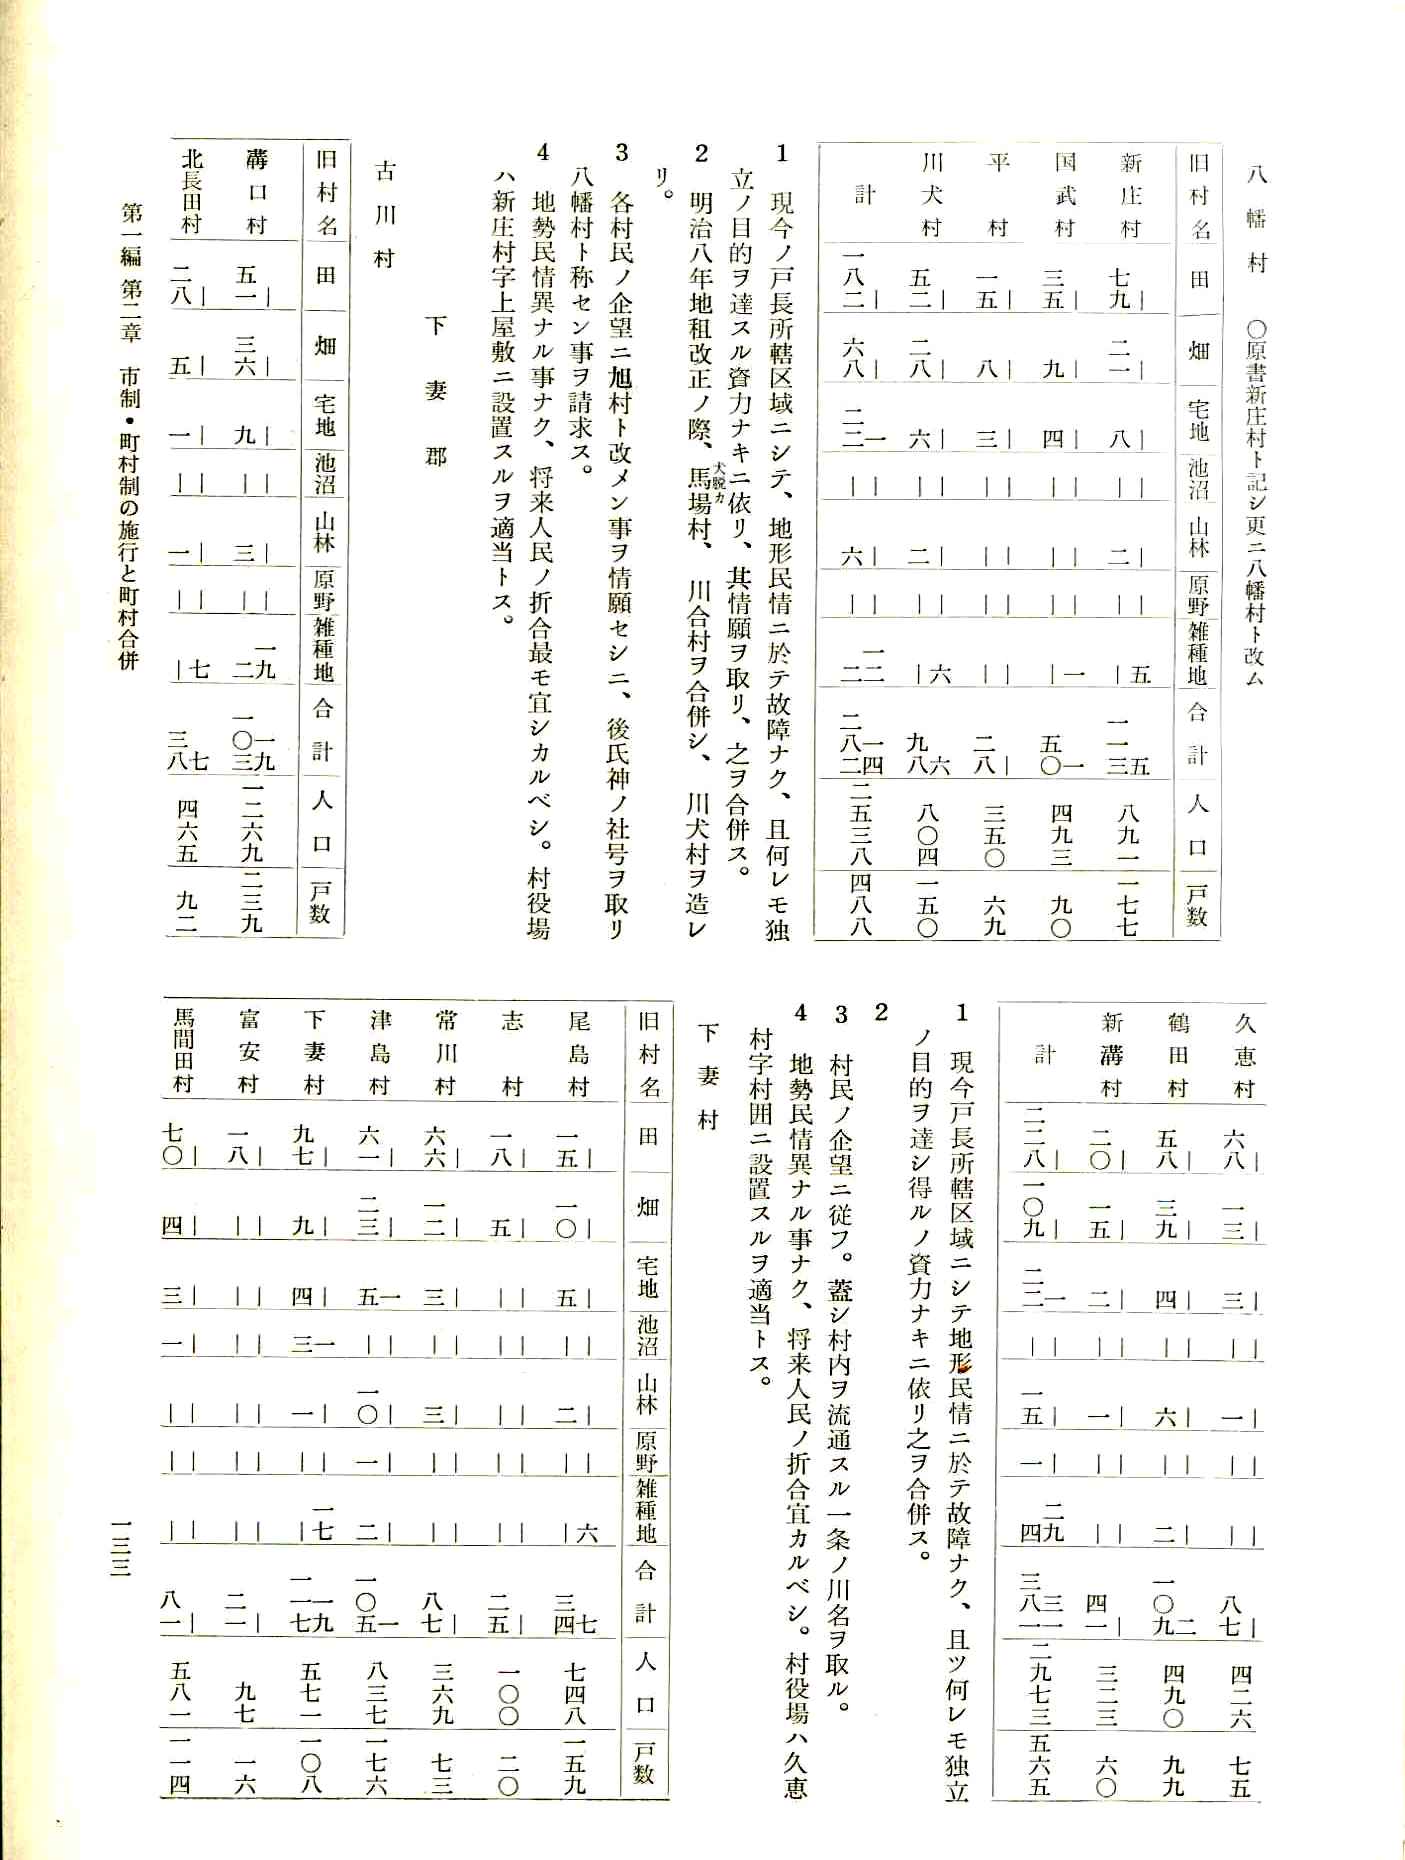 八幡村 〇原書新庄村ト記シ更ニ八幡村ト改ム
旧村名 田 畑 宅地 池沼 山林 原野 雑種地 合計 人口 戸数
新庄村 七九｜ 二一｜ 八｜ ｜｜ 二｜ ｜｜ ｜五 一一三五 八九一 一七七
国武村 三五｜ 九｜ 四｜ ｜｜ ｜｜ ｜｜ ｜一 五〇一 四九三 九〇
平村 一五｜ 八｜ 三｜ ｜｜ ｜｜ ｜｜ ｜｜ 二八｜ 三五〇 六九
川犬村 五二｜ 二八｜ 六｜ ｜｜ 二｜ ｜｜ ｜六 九八六 八〇四 一五〇
計 一八二｜ 六八｜ 二二一 ｜｜ 六｜ ｜｜ 二一二 二八二一四 二五三八 四八八
1 現今ノ戸長所轄区域ニシテ、地形民情ニ於テ故障ナク、且何レモ独
立ノ目的ヲ達スル資力ナキニ依リ、其情願ヲ取リ、之ヲ合併ス。
犬脱カ
2 明治八年地租改正ノ際、馬場村、川合村ヲ合併シ、川犬村ヲ造レ
リ。
3 各村民ノ企望ニ旭村ト改メン事ヲ情願セシニ、後氏神ノ社号ヲ取リ
八幡村ト称セン事ヲ請求ス。
4 地勢民情異ナル事ナク、将来人民ノ折合最モ宜シカルベシ。村役場
ハ新庄村字上屋敷ニ設置スルヲ適当トス。
下妻郡
古川村
旧村名 田 畑 宅地 池沼 山林 原野 雑種地 合計 人口 戸数
溝口村 五一｜ 三六｜ 九｜ ｜｜ 三｜ ｜｜ 二一九 一〇三一九 一二六九 二三九
北長田村 二八｜ 五｜ 一｜ ｜｜ 一｜ ｜｜ ｜七 三八七 四六五 九二
久恵村 六八｜ 一三｜ 三｜ ｜｜ 一｜ ｜｜ ｜｜ 八七｜ 四二六 七五
鶴田村 五八｜ 三九｜ 四｜ ｜｜ 六｜ ｜｜ 二｜ 一〇九二 四九〇 九九
新溝村 二〇｜ 一五｜ 二｜ ｜｜ 一｜ ｜｜ ｜｜ 四一｜ 三二三 六〇
計 二二八｜ 一〇九｜ 二二一 ｜｜ 一五｜ 一｜ 四二九 三八一三一 二九七三 五六五
1 現今戸長所轄区域ニシテ地形民情ニ於テ故障ナク、且ツ何レモ独立
ノ目的ヲ達シ得ルノ資力ナキニ依リ之ヲ合併ス。
2
3 村民ノ企望ニ従フ。蓋シ村内ヲ流通スル一条ノ川名ヲ取ル。
4 地勢民情異ナル事ナク、将来人民ノ折合宜カルベシ。村役場ハ久恵
村字村囲ニ設置スルヲ適当トス。
下妻村
旧村名 田 畑 宅地 池沼 山林 原野 雑種地 合計 人口 戸数
尾島村 一五｜ 一〇｜ 五｜ ｜｜ 二｜ ｜｜ ｜六 三四七 七四八 一五九
志村 一八｜ 五｜ ｜｜ ｜｜ ｜｜ ｜｜ ｜｜ 二五｜ 一〇〇 二〇
常川村 六六｜ 一二｜ 三｜ ｜｜ 三｜ ｜｜ ｜｜ 八七｜ 三六九 七三
津島村 六一｜ 二三｜ 五一 ｜｜ 一〇｜ 一｜ 二｜ 一〇五一 八三七 一七六
下妻村 九七｜ 九｜ 四｜ 三一 一｜ ｜｜ ｜一七 一一七一九 五七一 一〇八
富安村 一八｜ ｜｜ ｜｜ ｜｜ ｜｜ ｜｜ ｜｜ 二一｜ 九七 一六
馬間田村 七〇｜ 四｜ 三｜ 一｜ ｜｜ ｜｜ ｜｜ 八一｜ 五八一 一一四
第一編 第二章 市制・町村制の施行と町村合併
一三三